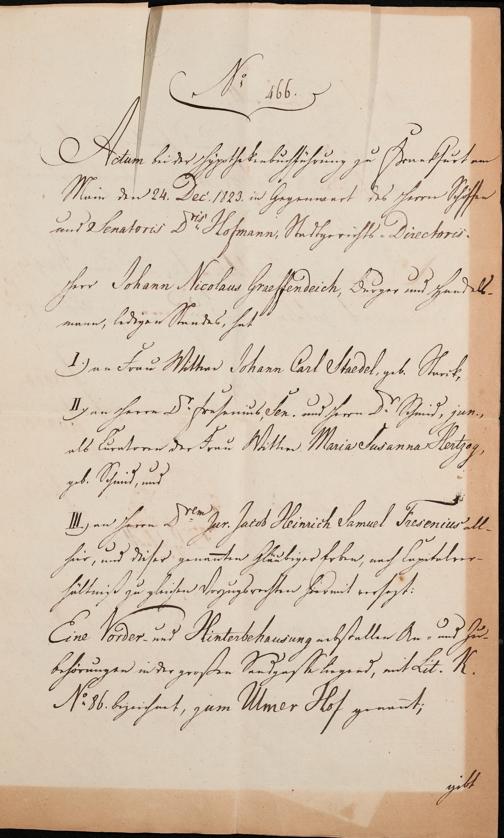 No 466.
Actum bei der Hypothekenbuchführung zu Frankfurt am
Main den 24. Dec. 1823. in Gegenwart des Herrn Schöffen
und Senatoris Dris Hofmann, Stadtgerichts-Directoris.
Herr Johann Nicolaus Graeffendeich, Burger und Handels-
mann, ledigen Standes, hat
I.) an Frau Wittwe Johann Carl Staedel, geb. Starck,
II.) an Herrn Dr. Fresenius, Sen. und Herrn Dr. Schmid, jun.,
als Curatoren der Frau Wittwe Maria Susanna Hertzog,
geb. Schmid, und
III.) an Herrn Drem Jur. Jacob Heinrich Samuel Fresenius all-
hier, und dieser genannten Gläubiger Erben, nach Capitalver-
hältniß zu gleichen Vorzugsrechten hiermit versezt:
Eine Vorder- und Hinterbehausung nebst allen An- und Zu-
behörungen in der großen Sandgasse liegend, mit Lit. K.
No 86. bezeichnet, zum Ulmer Hof genannt;
gibt